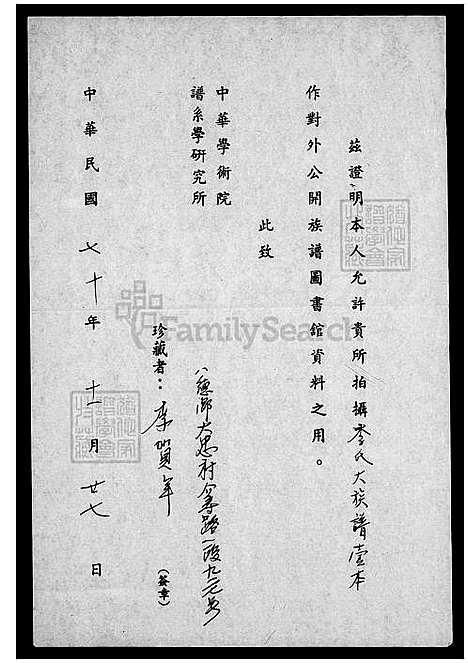 茲證明本人允許貴所拍攝李氏大族譜壹本
作對外公開族譜圖書館資料之用。
此致
中華學術院
譜系學研究所
珍藏者：李賀年（簽章）
八德鄉大忠村介壽路一段九元號
中華民國七十年十一月廿七日
FamilySearch